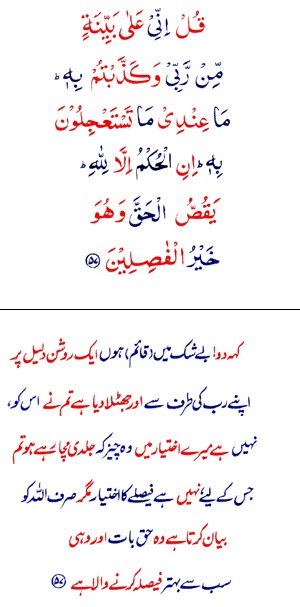 قُلْ اِنِّىْ عَلٰى بَيِّنَةٍ
مِّنْ رَّبِّىْ وَكَذَّبْتُمْ بِهٖ ؕ
مَا عِنْدِىْ مَا تَسْتَعْجِلُوْنَ
بِهٖ ؕ اِنِ الْحُكْمُ اِلَّا لِلّٰهِ ؕ
يَقُصُّ الْحَقَّ وَهُوَ
خَيْرُ الْفٰصِلِيْنَ ﴿۵۷﴾
کہہ دو! بے شک میں (قائم) ہوں ایک روشن دلیل پر
اپنے رب کی طرف سے اور جھٹلا دیا ہے تم نے اس کو،
نہیں ہے میرے اختیار میں وہ چیز کہ جلدی مچا رہے ہو تم
جس کے لیۓ نہیں ہے فیصلے کا اختیار مگر صرف اللہ کو
بیان کرتا ہے وہ حق بات اور وہی
سب سے بہتر فیصلہ کرنے والا ہے ﴿۵۷﴾